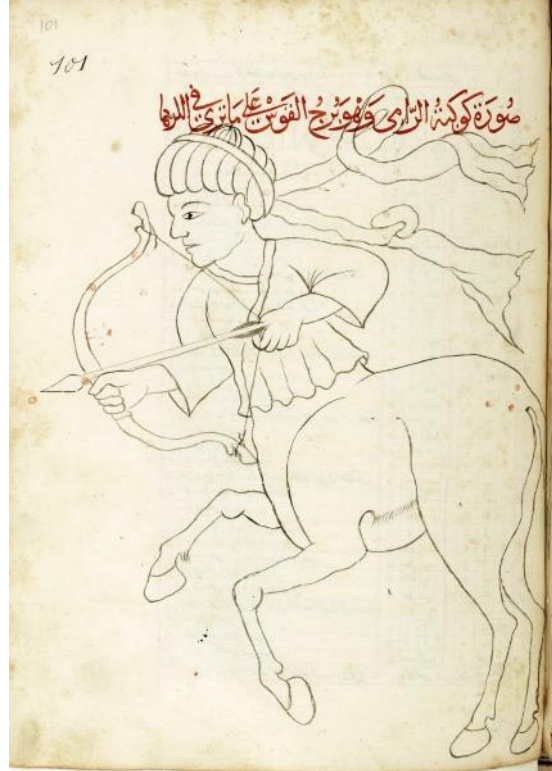 101
101
صُورَة كَوكبَةُ الرَّامِى وَهُوَ بُرجُ القَوسْ عَلَى مَا تُرَى فى